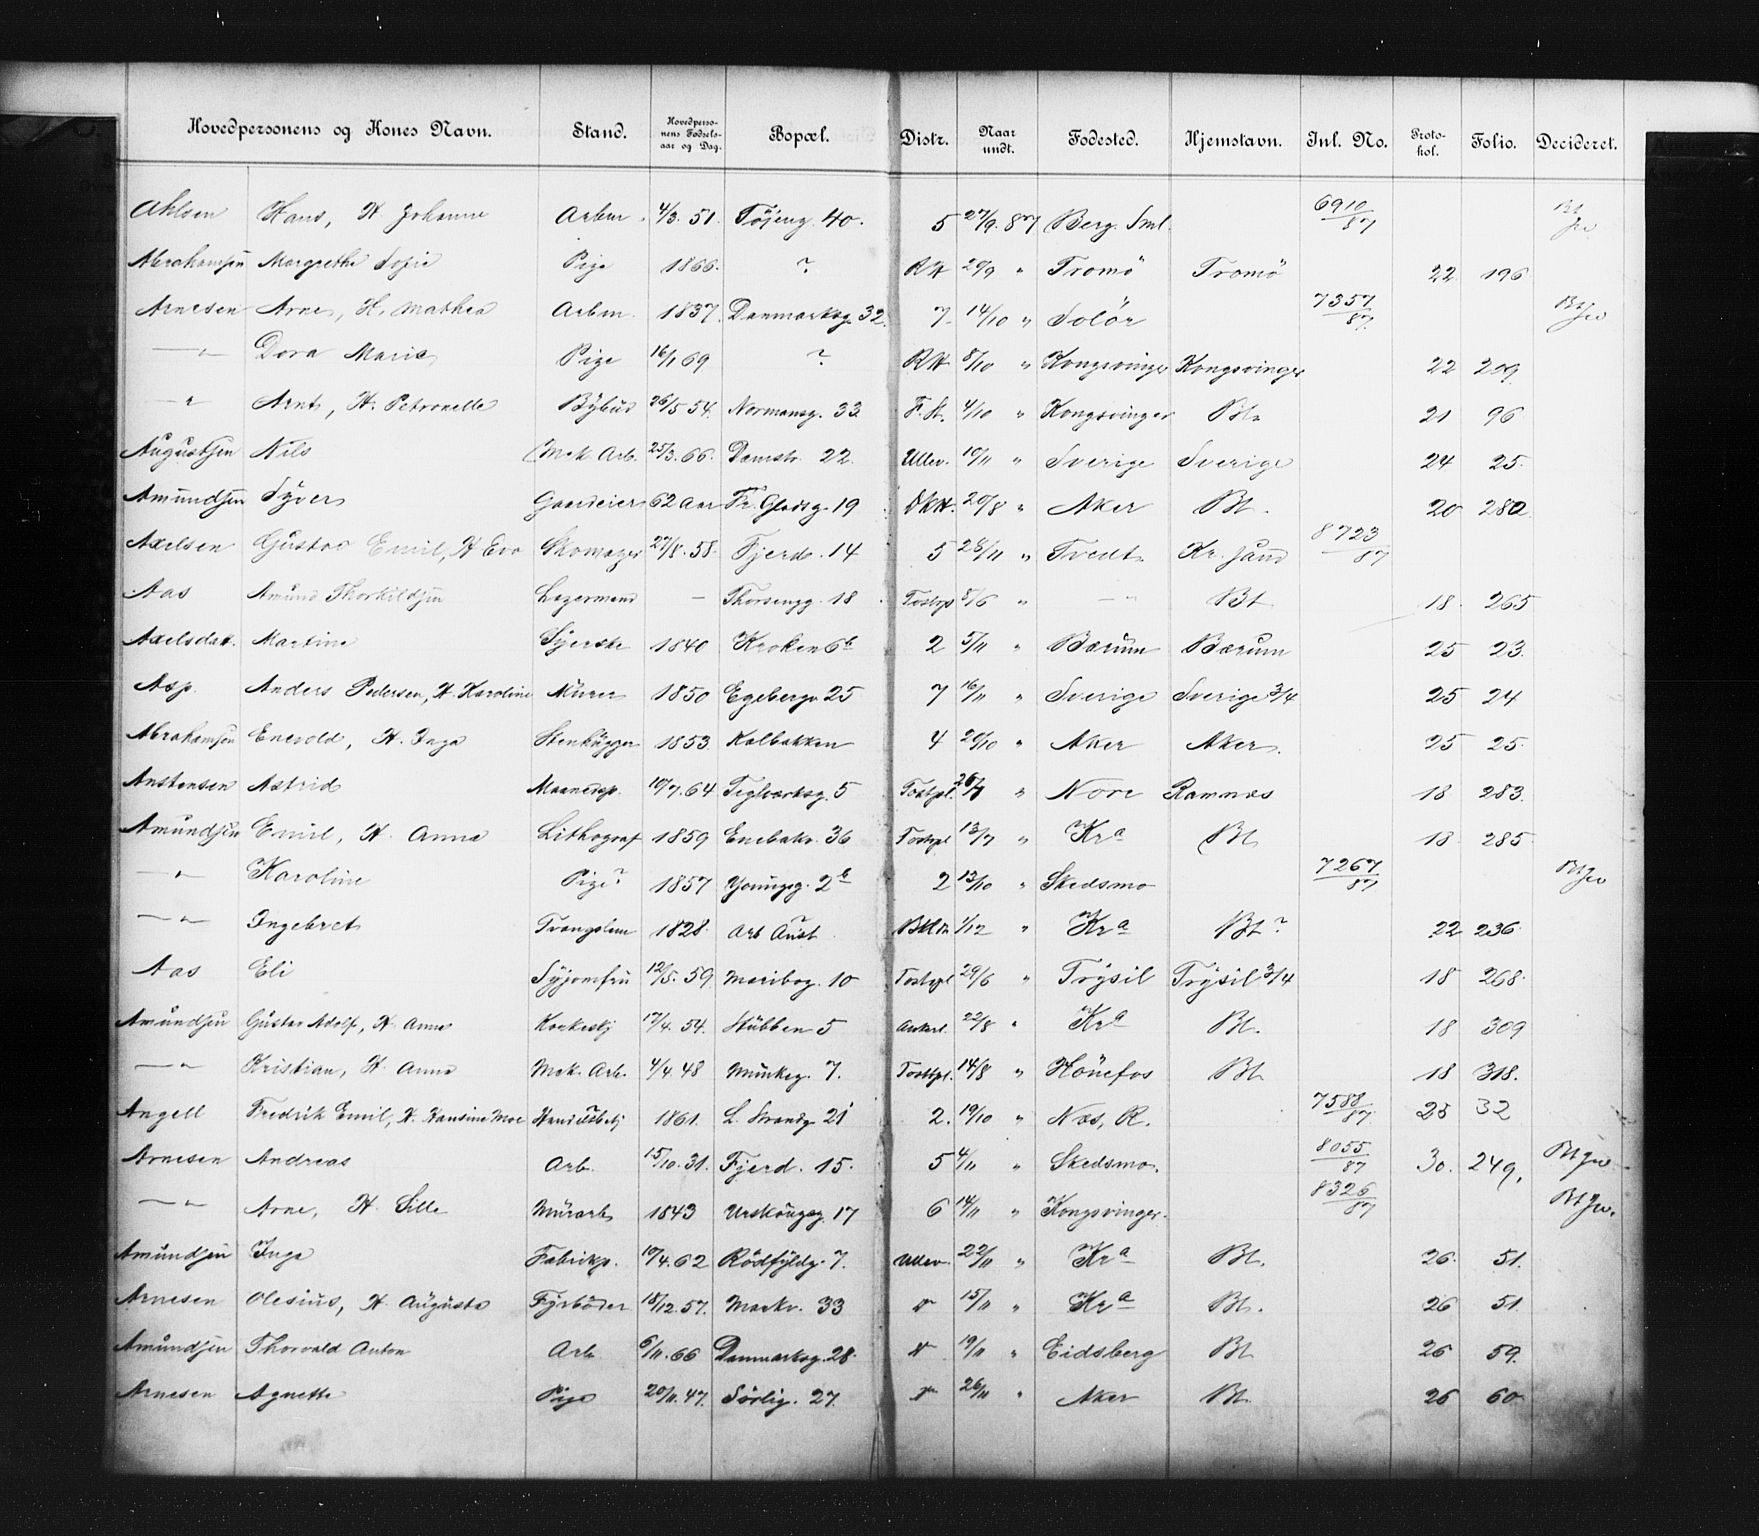 Hovedpersonens og Kones Navn. Stand. Hovedpersonens Fødselsaar og Dag. Bopæl. Distr. Naar undt. Fødested. Hjemstavn. Inl. No. Protokol. Folio. Decideret.
Ahlsen Hans, H. Johanne Arbm. 4/3. 51. Töjeng. 40. 5 27/9. 87 Berg. Sml. 6910/87
Abrahamsen Margrethe Sofie Pige 1866. ? RH 20/9 " Tromö Tromö 22 196
Arnesen Arne, H. Mathea Arbm. 1837. Danmarksg. 32. 7. 14/10 " Solör 7357/87
— " Dora Marie Pige 16/1 69 ? RH 8/10 " Kongsvinger Kongsvinger 22 209
— " Arnt, H. Petronelle Bÿbud 26/5 54. Normansg. 33 F. St. 4/10 " Kongsvinger Bt. 21 96
Augustsen Nils Mek. Arb. 25/3. 66. Damstr. 22. Ullev. 10/11 " Sverige Sverige 24 25.
Amundsen Syver Gaardeier 62 Aar Fr. Gladsg. 19 20/8 " Aker Bt. 20 280
Axelsen Gustav Emil, H. Eva Skomager 27/8. 58. Fjerd. 14 5 28/11 " Tvedt. Kr. sand 8723/87
Aas Amund Thorkildsen Lagermand — Thorsengg. 18 8/6 " — " Bt 18. 265
Axelsdatt. Martine Syerske 1840 Kroken 6b 2 5/11 " Bærum Bærum 25 23.
Asp. Anders Pedersen, H. Karoline Murer 1850 Egebergv 25 7 16/11 " Sverige Sverige 3/4 25 24
Abrahamsen Enevold, H. Inga Stenhugger 1853 Kalbakken 4 20/10 " Aker Aker. 25 25.
Anstensen Astrid Maanedsp. 10/7. 64 Teglværksg. 5 Tostpl. 26/7 " Nore Ramnæs 18 283.
Amundsen Emil, H. Anna Lithograf 1859 Enebakv. 36 Tostpl 13/7 " Kra Bt. 18. 285.
— " Karoline Pige? 1857 Youngsg. 2b 2 13/10 " Skedsmo 7267/87
— " Ingebret Tvangslem 1828. Arb Anst. 1/12 " Kra Bt? 22 236
Aas Eli Syjomfru 12/5. 59 Maribog. 10 Tostpl 29/6 " Trysil Trysil 3/4 18 268.
Amundsen Gustav Adolf, H. Anna Korkeskj 17/4. 54. Stubben 5 Ankerl. 22/8 " Kra Bt. 18 309
— " Kristian, H. Anna Mek. Arb. 4/4. 48 Munkeg. 7. Tostpl. 14/8 " Hönefos Bt. 18 318.
Angell Fredrik Emil, H. Hansine Moe Handelsbetj 1861. L. Strandg. 21 2. 19/10 " Næs, R. 7588/87. 25 32
Arnesen Andreas Arb. 15/10. 31. Fjerd. 15. 5 4/11 " Skedsmo. 8055/87 30. 249,
— " Arne, H. Sille Murarb. 1843 Urskougsg. 17 6 14/11 " Kongsvinger. 8326/87
Amundsen Inga Fabrikp. 10/4. 62 Rödfyldg. 7. Ullev. 22/11 " Kra Bt. 26. 51.
Arnesen Olesius, H. Augusta Fyrböder 18/12. 57. Markv. 33 " 15/11 " Kra Bt. 26 51.
Amundsen Thorvald Anton Arb. 6/11. 66 Danmarksg. 28. " 19/11 " Eidsberg Bt. 26 59.
Arnesen Agnette Pige 20/11. 47. Sörlig. 27. " 26/11 " Aker Bt. 26 60